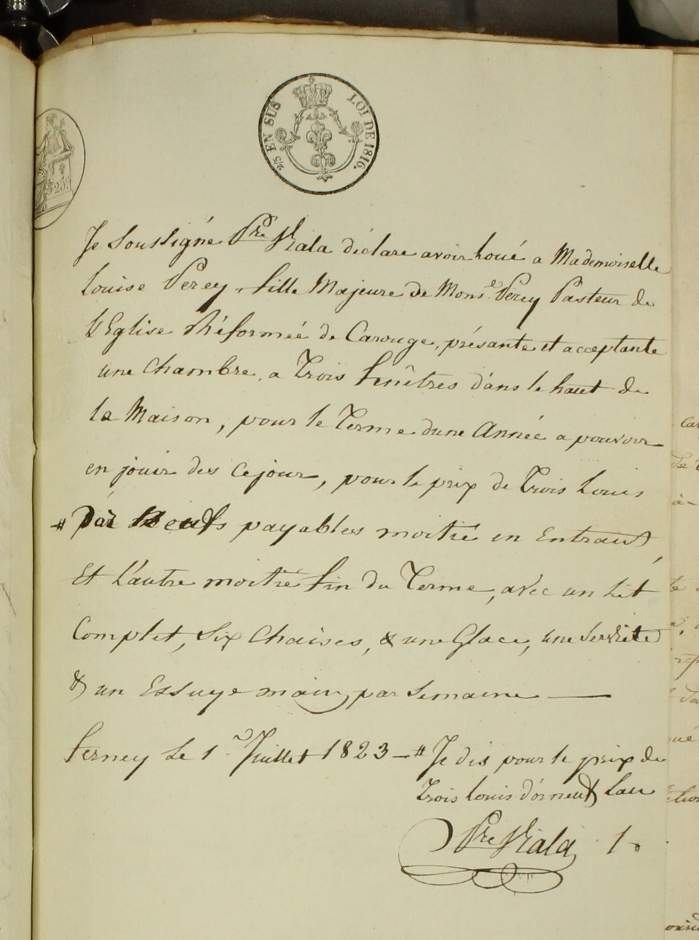 ¼ EN SUS LOI DE 1816.
Je soussigné Pre Viala déclare avoir loué a Mademoiselle
Louise Perey, fille Majeure de Monsr. Perey Pasteur de
L'Eglise Réformée de Carouge, présante et acceptante
une Chambre a Trois Fenêtres dans le haut de
la Maison, pour le Terme dune Année a pouvoir
en jouir des ce jour, pour le prix de Trois Louis
# payables moitié en Entrant,
Et L'autre moitié fin du Terme, avec un Lit
Complet, Six Chaises, & une Glace, une Serviete
& un Essuye main, par Semaine —
Ferney Le 1r Juillet 1823 — # Je dis pour le prix de
Trois Louis d'or neuf L'an
Pre Viala